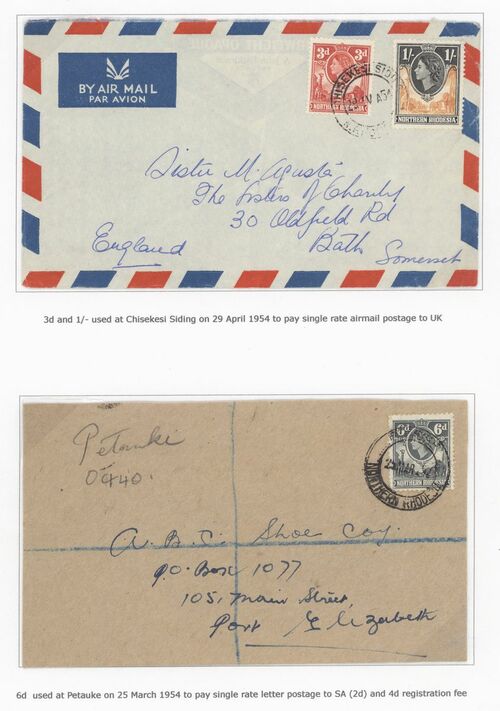 BY AIR MAIL
PAR AVION
3d
NORTHERN RHODESIA
1/-
NORTHERN RHODESIA
CHISEKESI
Sister M. Agusta
The Sisters of Charity
30 Oldfield Rd
Bath
Somerset
England
3d and 1/- used at Chisekesi Siding on 29 April 1954 to pay single rate airmail postage to UK
Petauki
0440.
6d 6d
NORTHERN RHODESIA
NORTHERN RHODES
A.B.C. Shoe Coy.
P.O. Box 1077
105, Main Street,
Port Elizabeth
6d used at Petauke on 25 March 1954 to pay single rate letter postage to SA (2d) and 4d registration fee